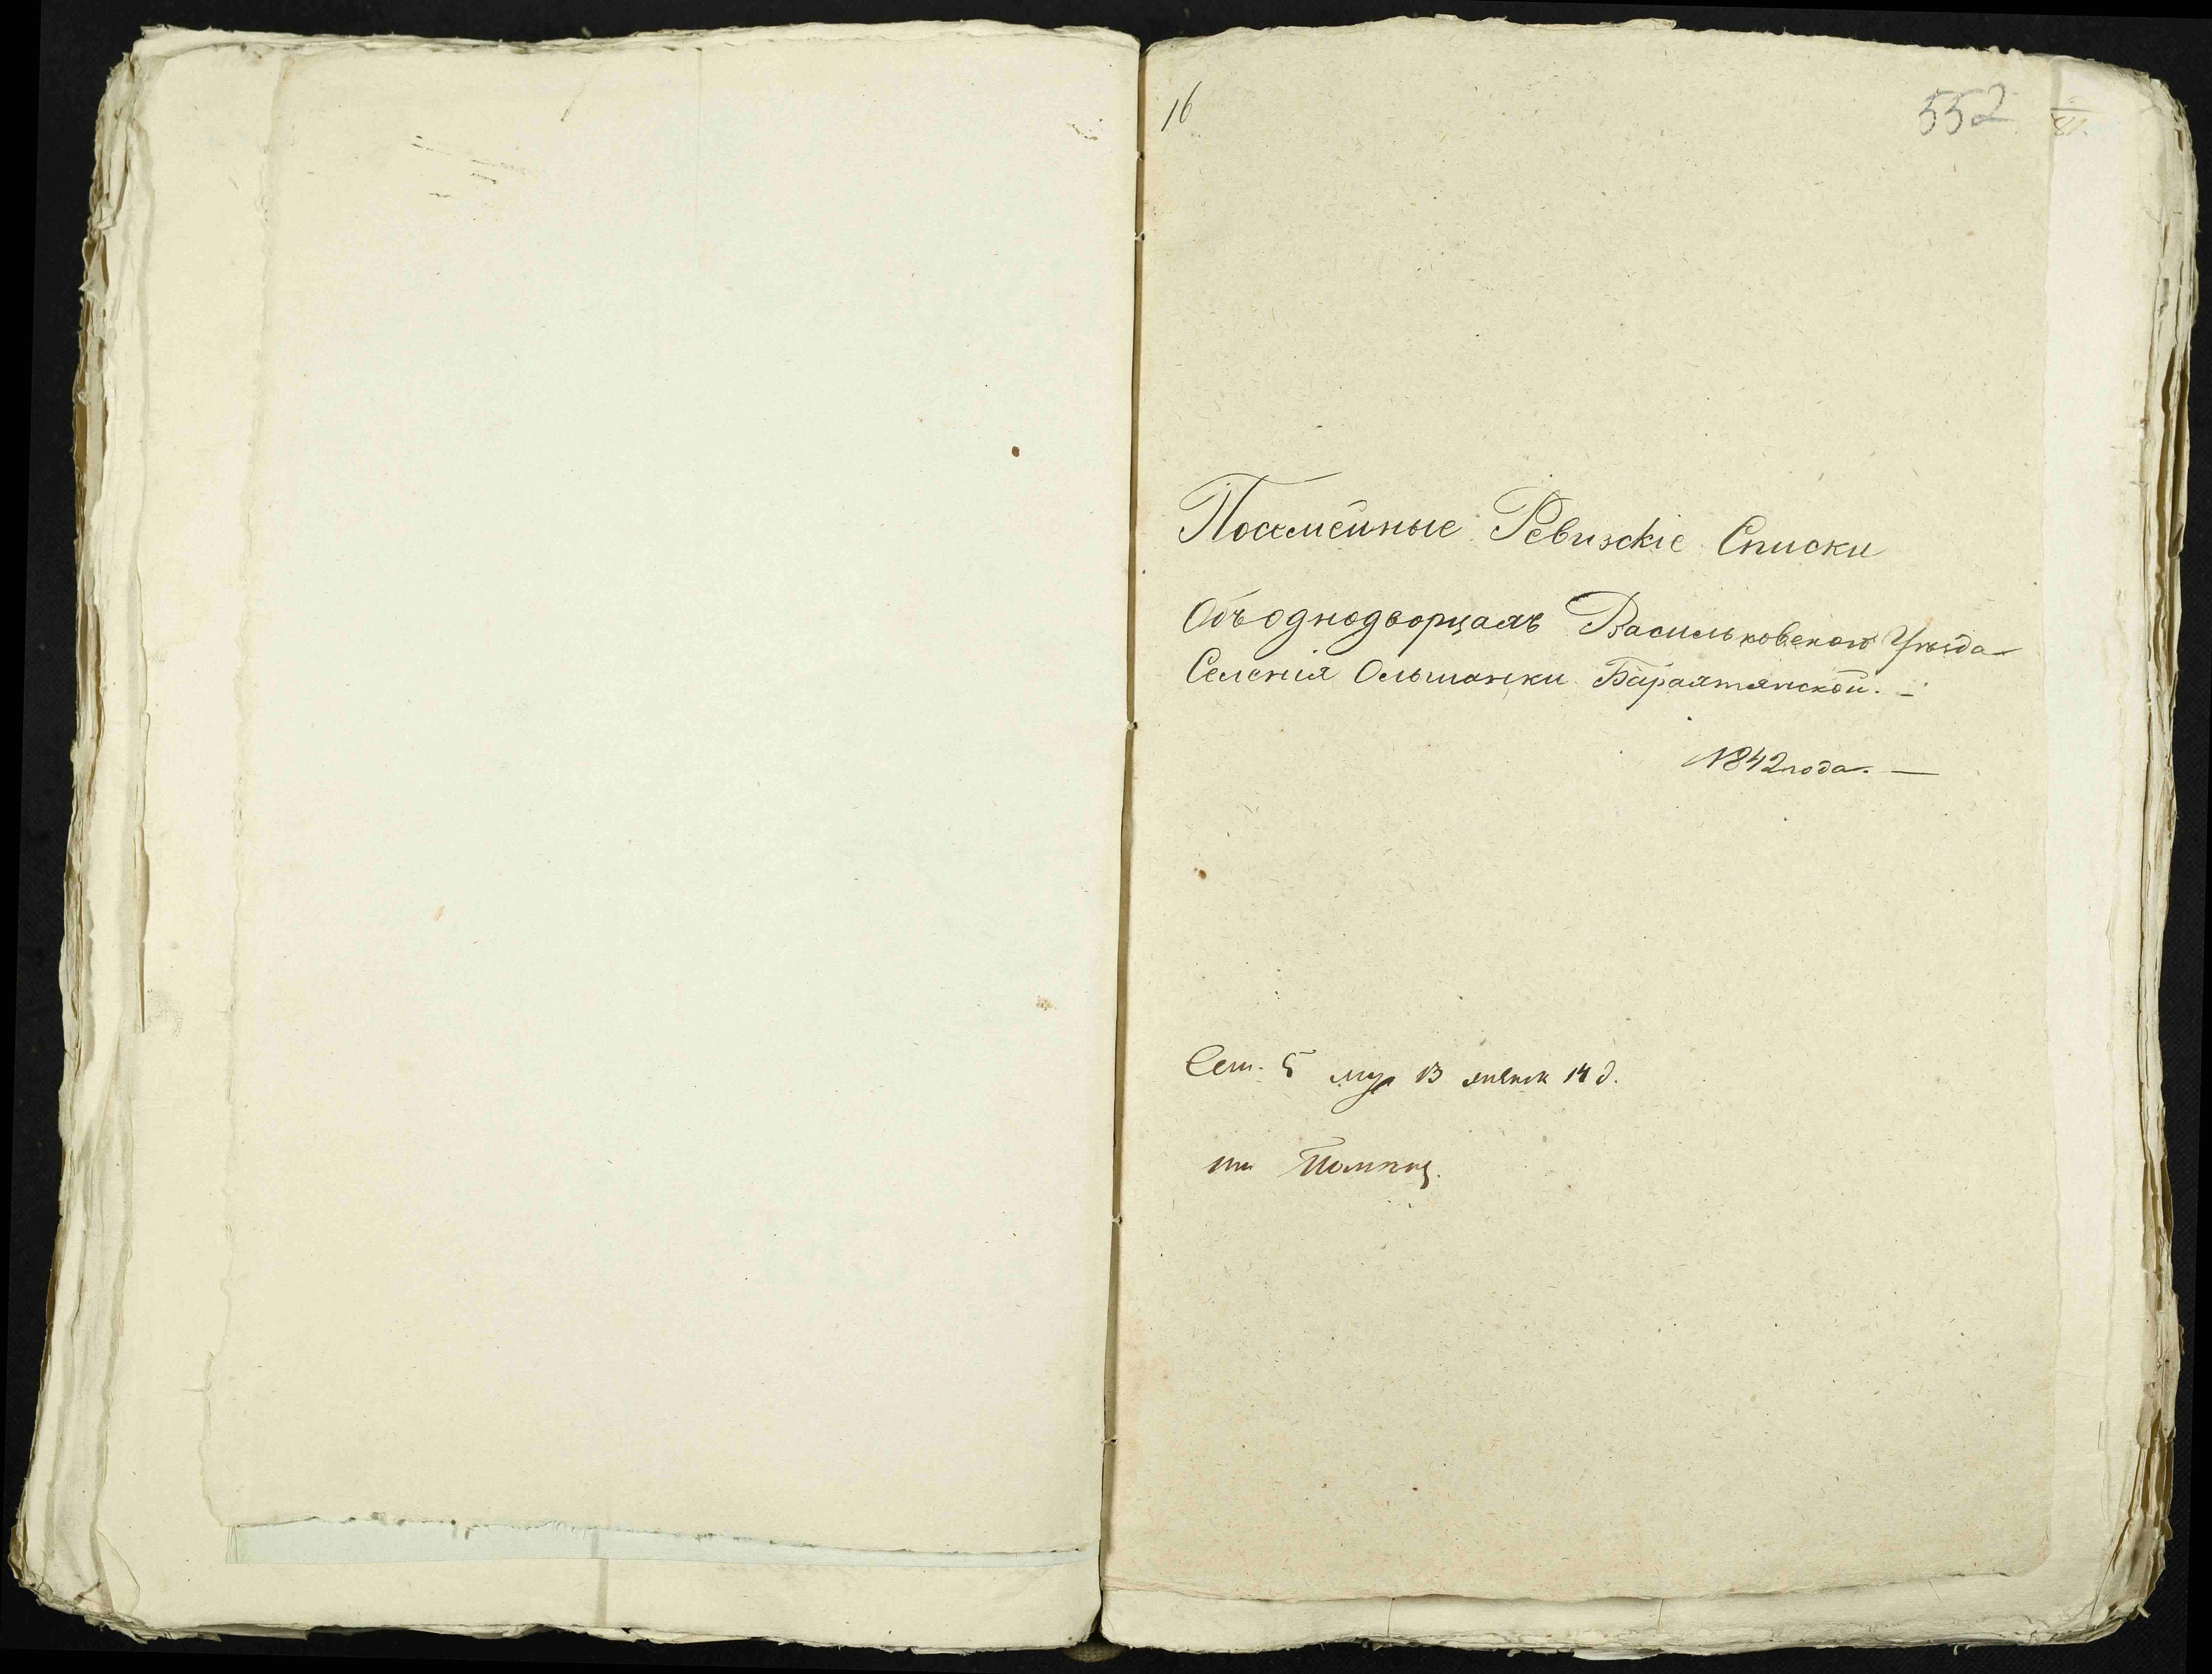 16
552
Посемейные Ревизскіе Списки
Объ однодворцахъ Васильковскаго Уѣзда
Селенія Ольшанки Барахтянской. —
1842 года. —
Сем. 5 муж 13 женск 14 д.